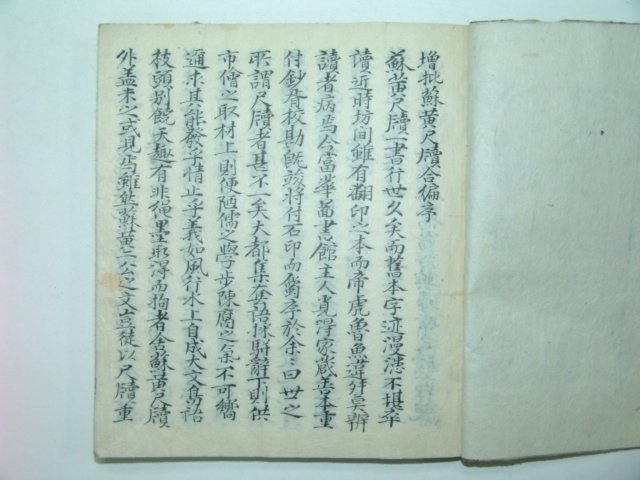 增批蘇黃尺牘合編序
蘇黃尺牘一書行世久矣而舊本字迹漫漶不堪卒
讀近時坊間雖有翻印之本而帝虎魯魚舛莫辨
讀者病焉今當華啚書館主人覓得家藏善本重
付鈔胥校勘既竣將付石印而問序於余余曰世之
所謂尺牘者甚不一矣大都集套語採駢辭下則供
市儈之取材上則便陋儒之學步陳腐之余不可嚮
邇求其能發乎情止乎義如風行水上自成大文鳥語
枝頭別饒天趣有非繩墨取得而拘者舍蘇黃尺牘
外盖未之或見焉雖然蘇黃二公之文豈徒以尺牘重